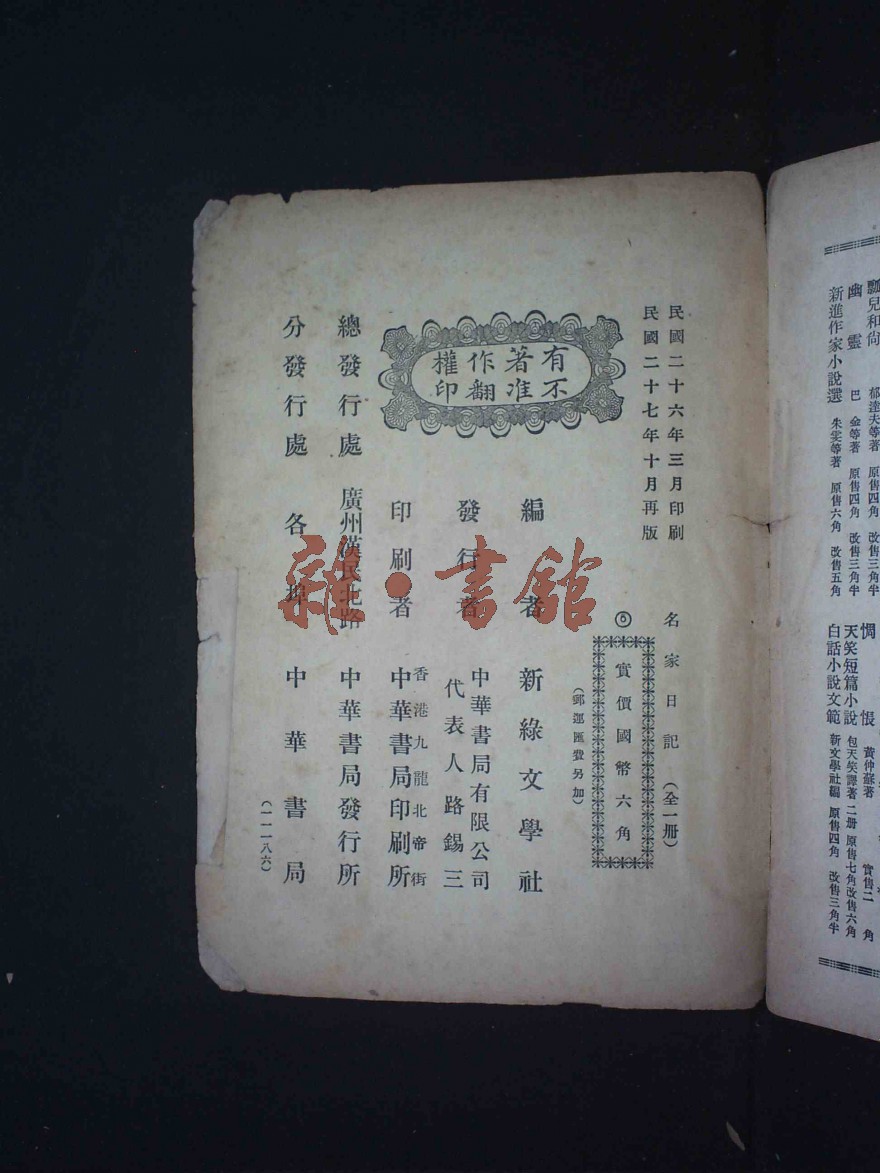 民國二十六年三月印刷
民國二十七年十月再版
有著作權
不准翻印
名家日記（全一冊）
⑥ 實價國幣六角
（郵運匯費另加）
編者 新綠文學社
發行者 中華書局有限公司
代表人路錫三
印刷者 香港九龍北帝街
中華書局印刷所
總發行處 廣州漢民北路 中華書局發行所
分發行處 各埠 中華書局
（一一一八六）
雜·書館
瓢兒和尚 郁達夫等著 原售四角 改售三角半
幽靈 巴金等著 原售四角 改售三角半
新進作家小說選 朱雯等著 原售六角 改售五角
惆悵 黃仲蘇著 實售二角
天笑短篇小說 包天笑譯著 二冊 原售七角 改售六角
白話小說文範 新文學社編 原售四角 改售三角半